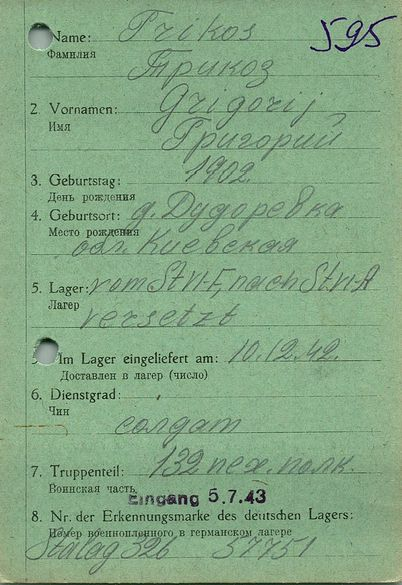 Name: Trikos 595
Фамилия
Трикоз
2. Vornamen: Grigorij
Имя
Григорий
3. Geburtstag: 1902.
День рождения
4. Geburtsort: д. Дудоревка
Место рождения
обл. Киевская
5. Lager: vom St VI-F, nach St VI-A
Лагер
versetzt
Im Lager eingeliefert am: 10.12.42.
Доставлен в лагер (число)
6. Dienstgrad:
Чин
солдат
7. Truppenteil: 132 пех. полк.
Воинская часть
Eingang 5.7.43
8. Nr. der Erkennungsmarke des deutschen Lagers:
Номер военнопленного в германском лагере
Stalag 326 37751